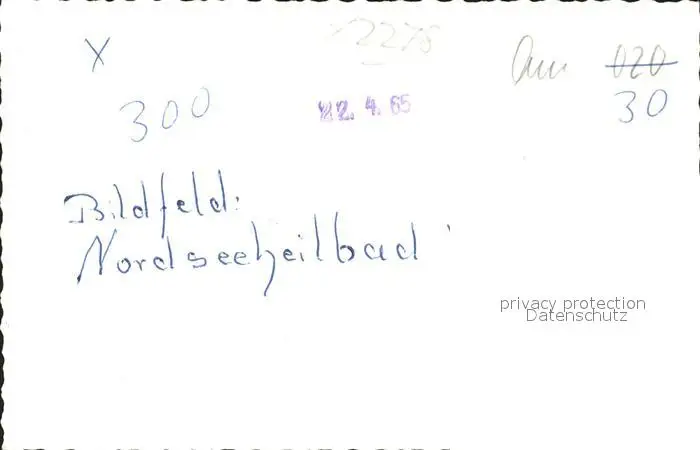 X
2275
020
300
22. 4. 65
30
Bildfeld:
Nordseeheilbad
privacy protection
Datenschutz